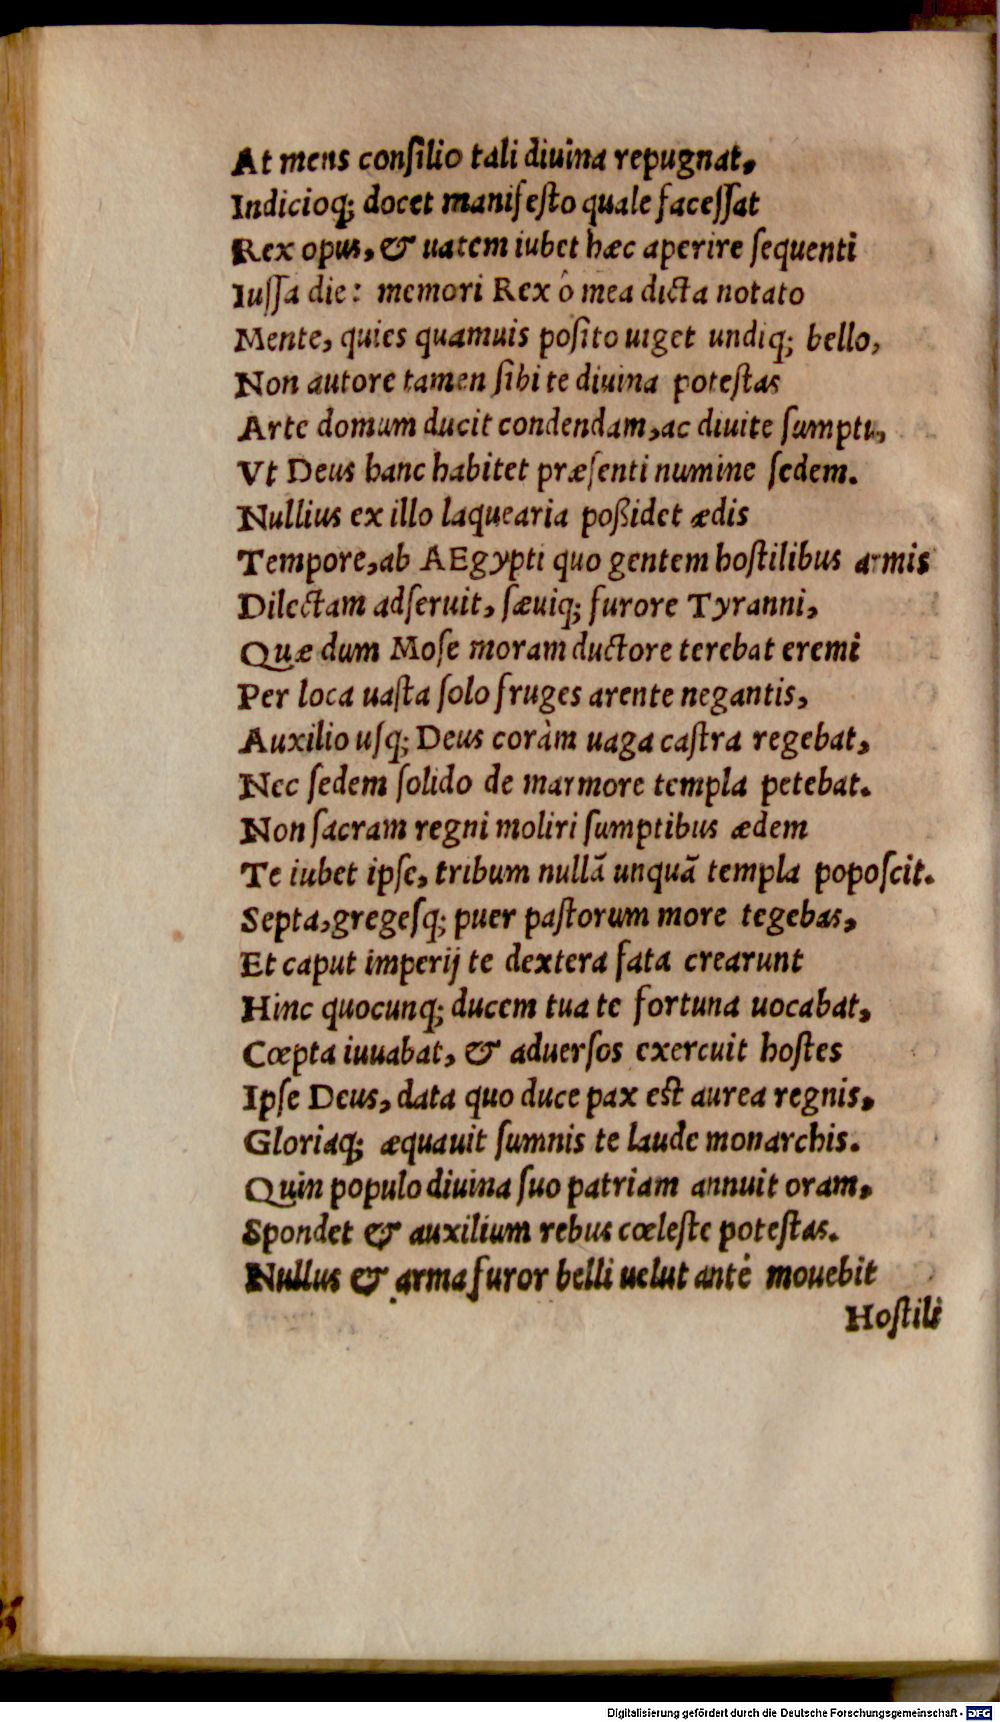 At mens conſilio tali diuina repugnat,
Indicioq; docet manifeſto quale faceſſat
Rex opus, & uatem iubet hæc aperire ſequenti
Iuſſa die: memori Rex ô mea dicta notato
Mente, quies quamuis poſito uiget undiq; bello,
Non autore tamen ſibi te diuina poteſtas
Arte domum ducit condendam, ac diuite ſumptu,
Vt Deus hanc habitet præſenti numine ſedem.
Nullius ex illo laquearia poßidet ædis
Tempore, ab AEgypti quo gentem hoſtilibus armis
Dilectam adſeruit, ſæuiq; furore Tyranni,
Quæ dum Moſe moram ductore terebat eremi
Per loca uaſta ſolo fruges arente negantis,
Auxilio uſq; Deus coràm uaga caſtra regebat,
Nec ſedem ſolido de marmore templa petebat.
Non ſacram regni moliri ſumptibus ædem
Te iubet ipſe, tribum nullā unquā templa popoſcit.
Septa, gregeſq; puer paſtorum more tegebas,
Et caput imperij te dextera fata crearunt
Hinc quocunq; ducem tua te fortuna uocabat,
Cœpta iuuabat, & aduerſos exercuit hoſtes
Ipſe Deus, data quo duce pax eſt aurea regnis,
Gloriaq; æquauit ſumnis te laude monarchis.
Quin populo diuina ſuo patriam annuit oram,
Spondet & auxilium rebus cœleſte poteſtas.
Nullus & arma furor belli uelut antè mouebit
Hoſtili
Digitalisierung gefördert durch die Deutsche Forschungsgemeinschaft - DFG